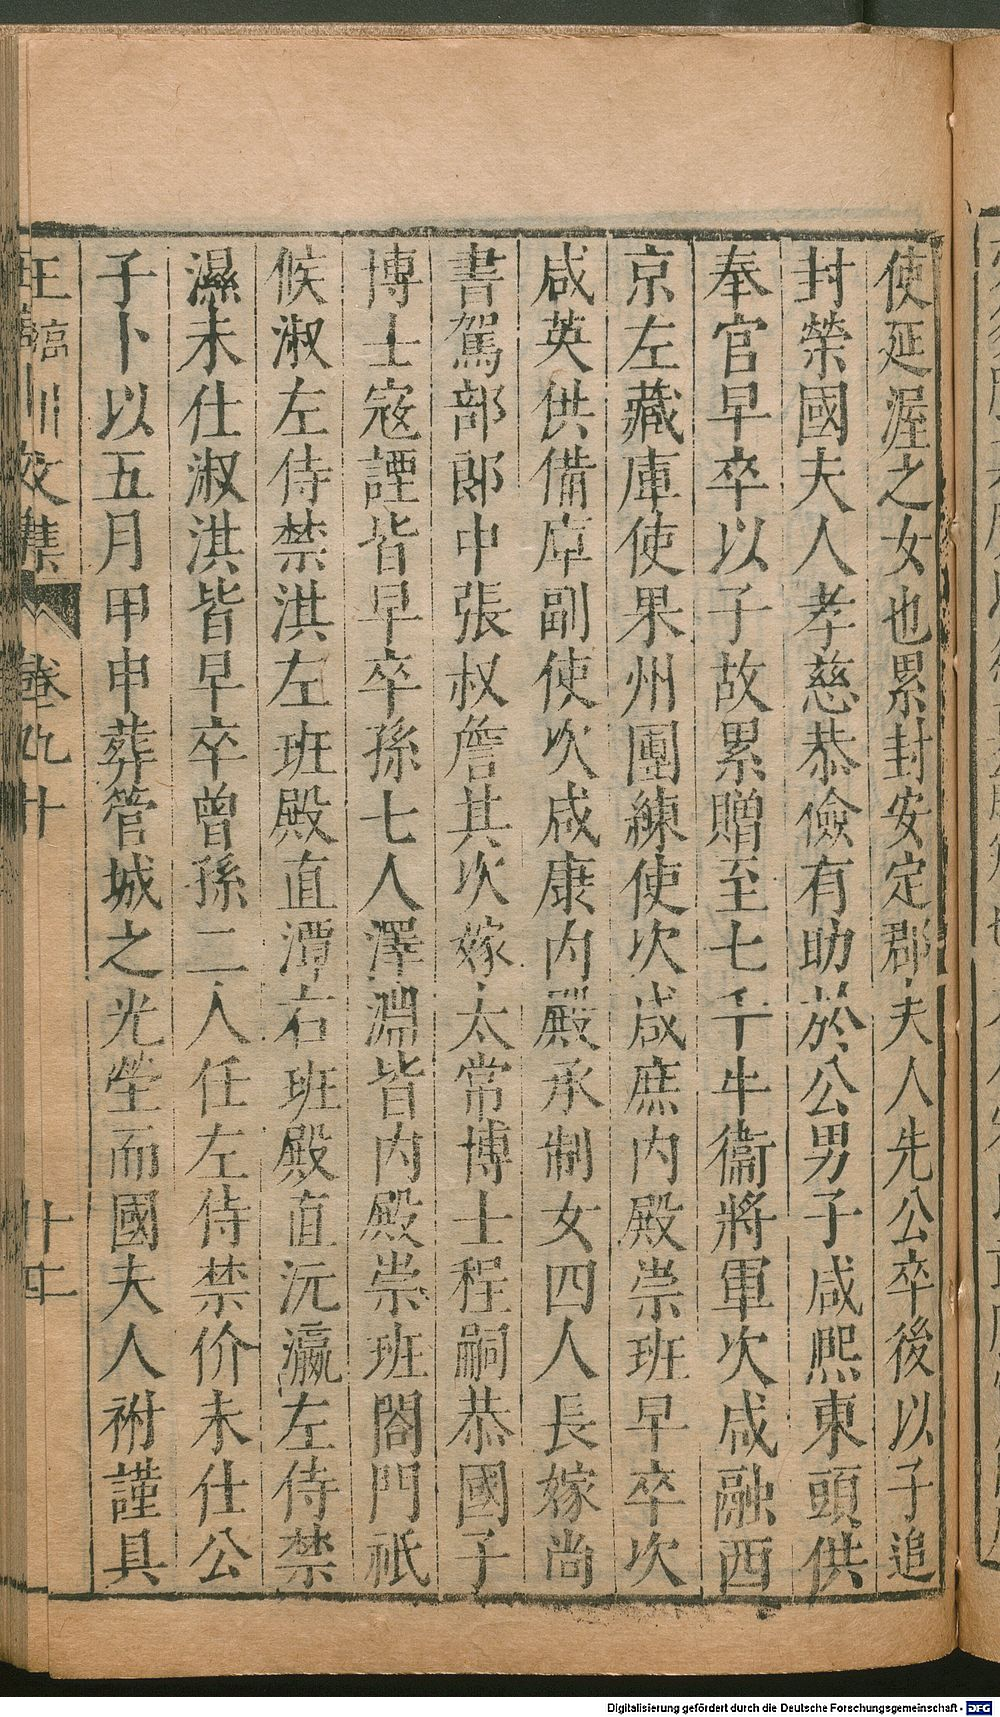 使延渥之女也累封安定郡夫人先公卒後以子追
封榮國夫人孝慈恭儉有助於公男子咸熙東頭供
奉官早卒以子故累贈至七千牛衞將軍次咸融西
京左藏庫使果州團練使次咸庶內殿崇班早卒次
咸英供備庫副使次咸康內殿承制女四人長嫁尚
書駕部郎中張叔詹其次嫁太常博士程嗣恭國子
博士寇諲皆早卒孫七人澤淵皆內殿崇班閤門祇
候淑左侍禁淇左班殿直潭右班殿直沅瀛左侍禁
濕未仕淑淇皆早卒曾孫二人任左侍禁价未仕公
子卜以五月甲申葬管城之先塋而國夫人祔謹具
王臨川文集 卷九十 廿四
Digitalisierung gefördert durch die Deutsche Forschungsgemeinschaft - DFG